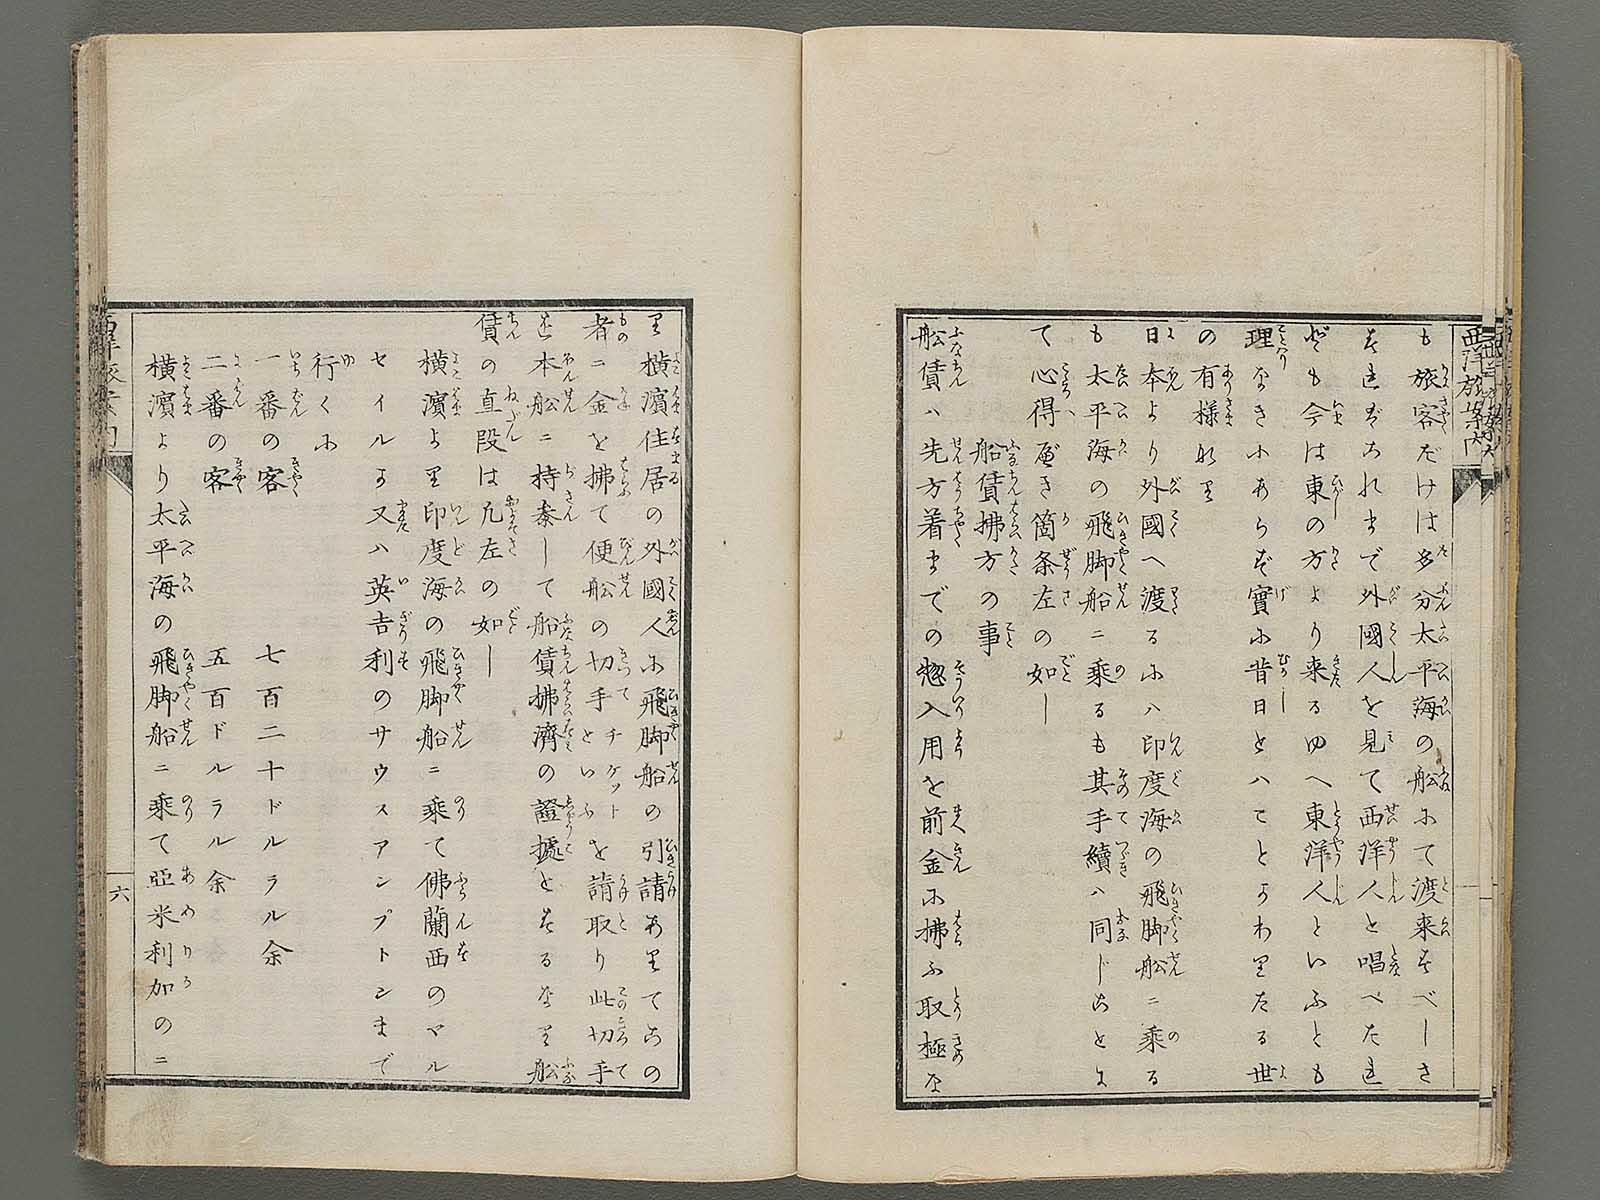 西洋旅案内
も旅客だけは多分太平海の船にて渡来すべしさ
すればこれまで外國人を見て西洋人と唱へたれ
ども今は東の方より来るゆへ東洋人といふとも
理なきにあらず實に昔日とハことかわりたる世
の有様なり
日本より外國へ渡るにハ印度海の飛脚船ニ乘る
も太平海の飛脚船ニ乘るも其手續ハ同じことに
て心得べき箇条左の如し
船賃拂方の事
船賃ハ先方着までの惣入用を前金に拂ふ取極な
り横濱住居の外國人に飛脚船の引請ありてこの
者ニ金を拂て便船の切手チケットといふを請取り此切手
を本船ニ持参して船賃拂濟の證據とするなり船
賃の直段は凡左の如し
横濱より印度海の飛脚船ニ乘て佛蘭西のマル
セイルか又ハ英吉利のサウスアンプトンまで
行くに
一番の客 七百二十ドルラル余
二番の客 五百ドルラル余
横濱より太平海の飛脚船ニ乘て亞米利加のニ
六